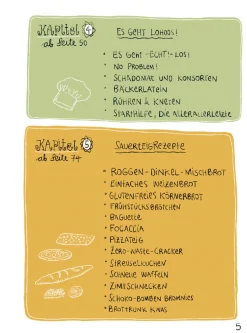 Kapitel 4
ab Seite 50
Es geht lohoos!
Es geht -echt!- los!
No Problem!
Schadomat und Konsorten
Bäckerlatein
Rühren & Kneten
Starthilfe, die allerallerletzte
Kapitel 5
ab Seite 74
Sauerteigrezepte
Roggen-Dinkel-Mischbrot
Einfaches Weizenbrot
Glutenfreies Körnerbrot
Frühstücksbrötchen
Baguette
Focaccia
Pizzateig
Zero-Waste-Cracker
Streuselkuchen
Schnelle Waffeln
Zimtschnecken
Schoko-Bomben Brownies
Brottrunk Kwas
5